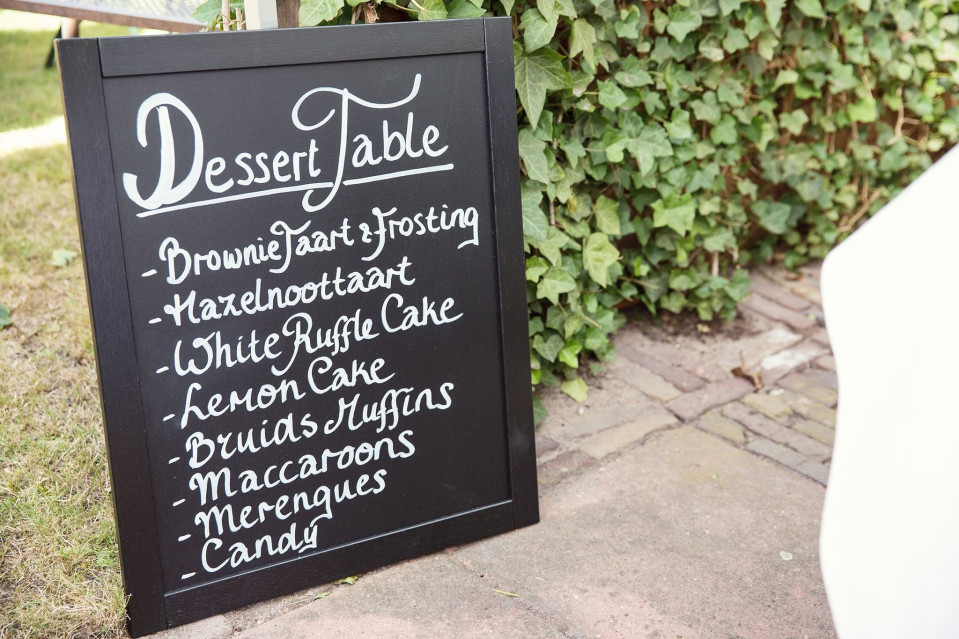 Dessert Table
- Brownie Taart & Frosting
- Hazelnoottaart
- White Ruffle Cake
- Lemon Cake
- Bruids Muffins
- Maccaroons
- Merengues
- Candy